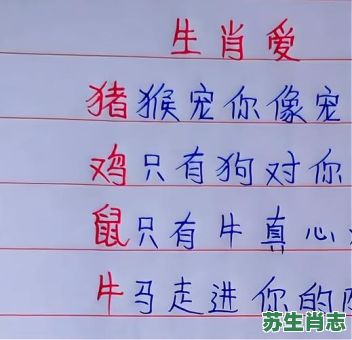 生肖爱
猪猴宠你像宠
鸡只有狗对你
鼠只有牛真心
牛马走进你的
苏生肖志